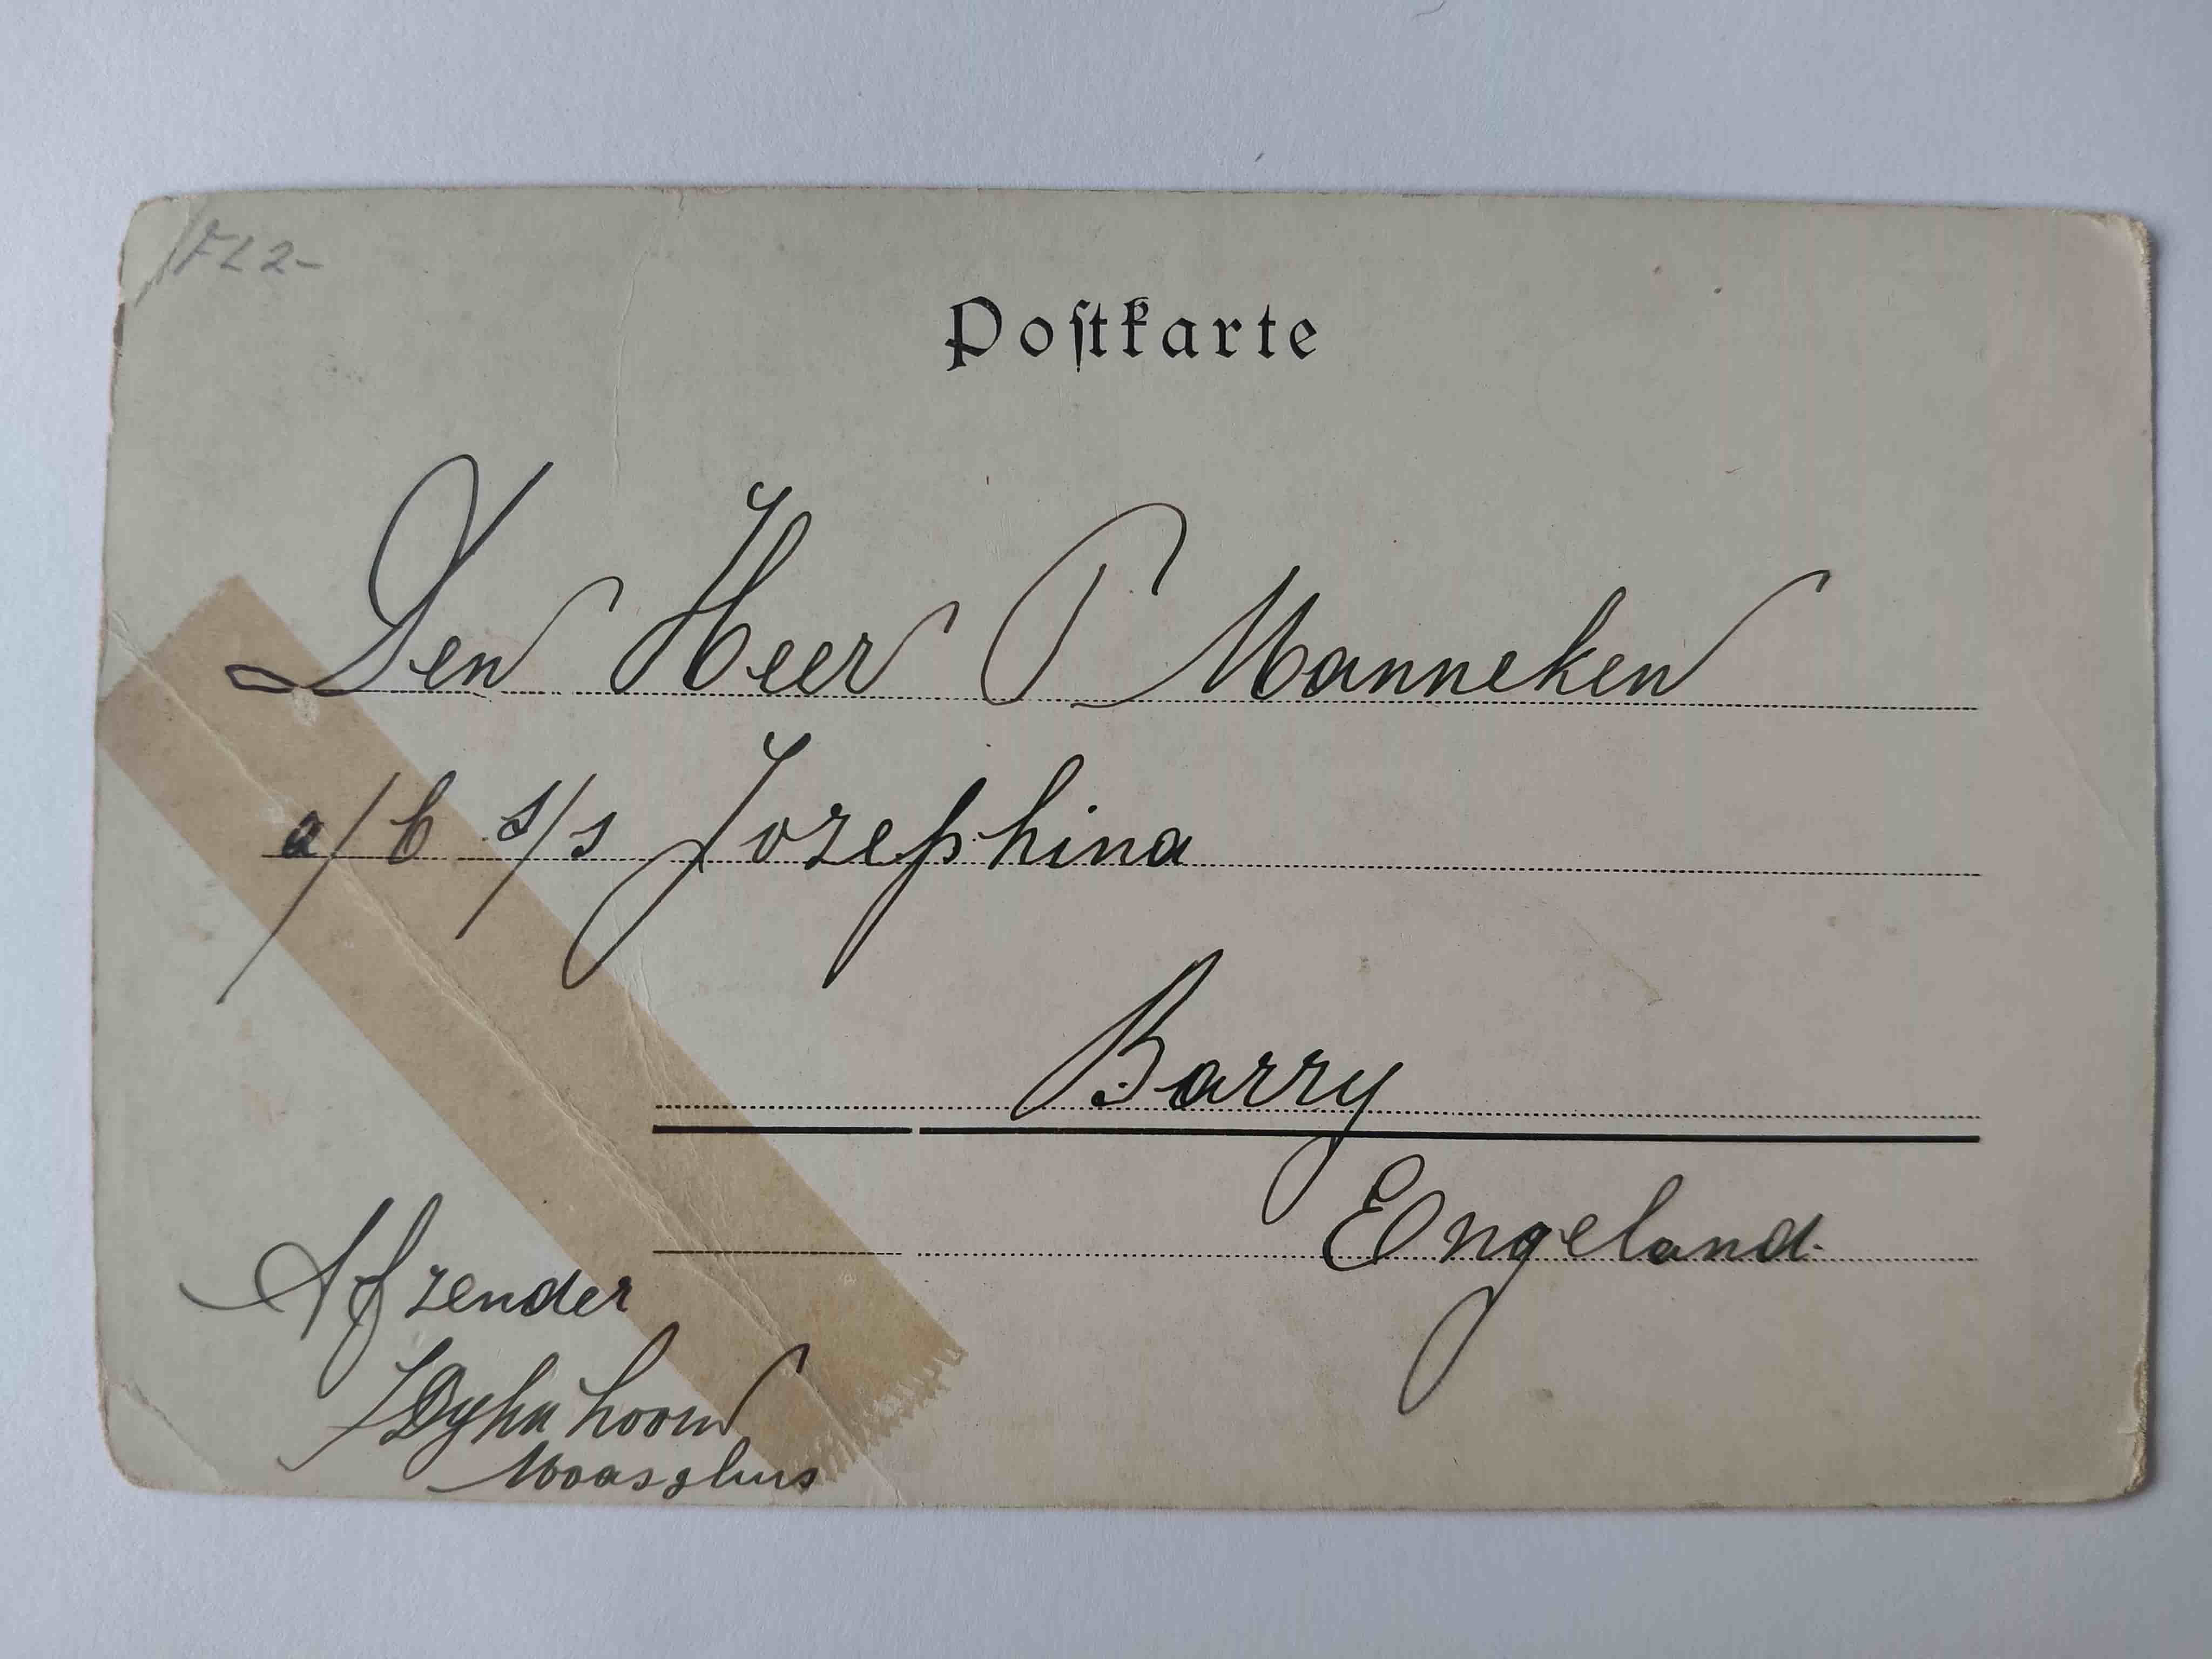 FL 2-
Postkarte
Den Heer P Manneken
a/b s/s Jozephina
Barry
Engeland.
Afzender
Maassluis